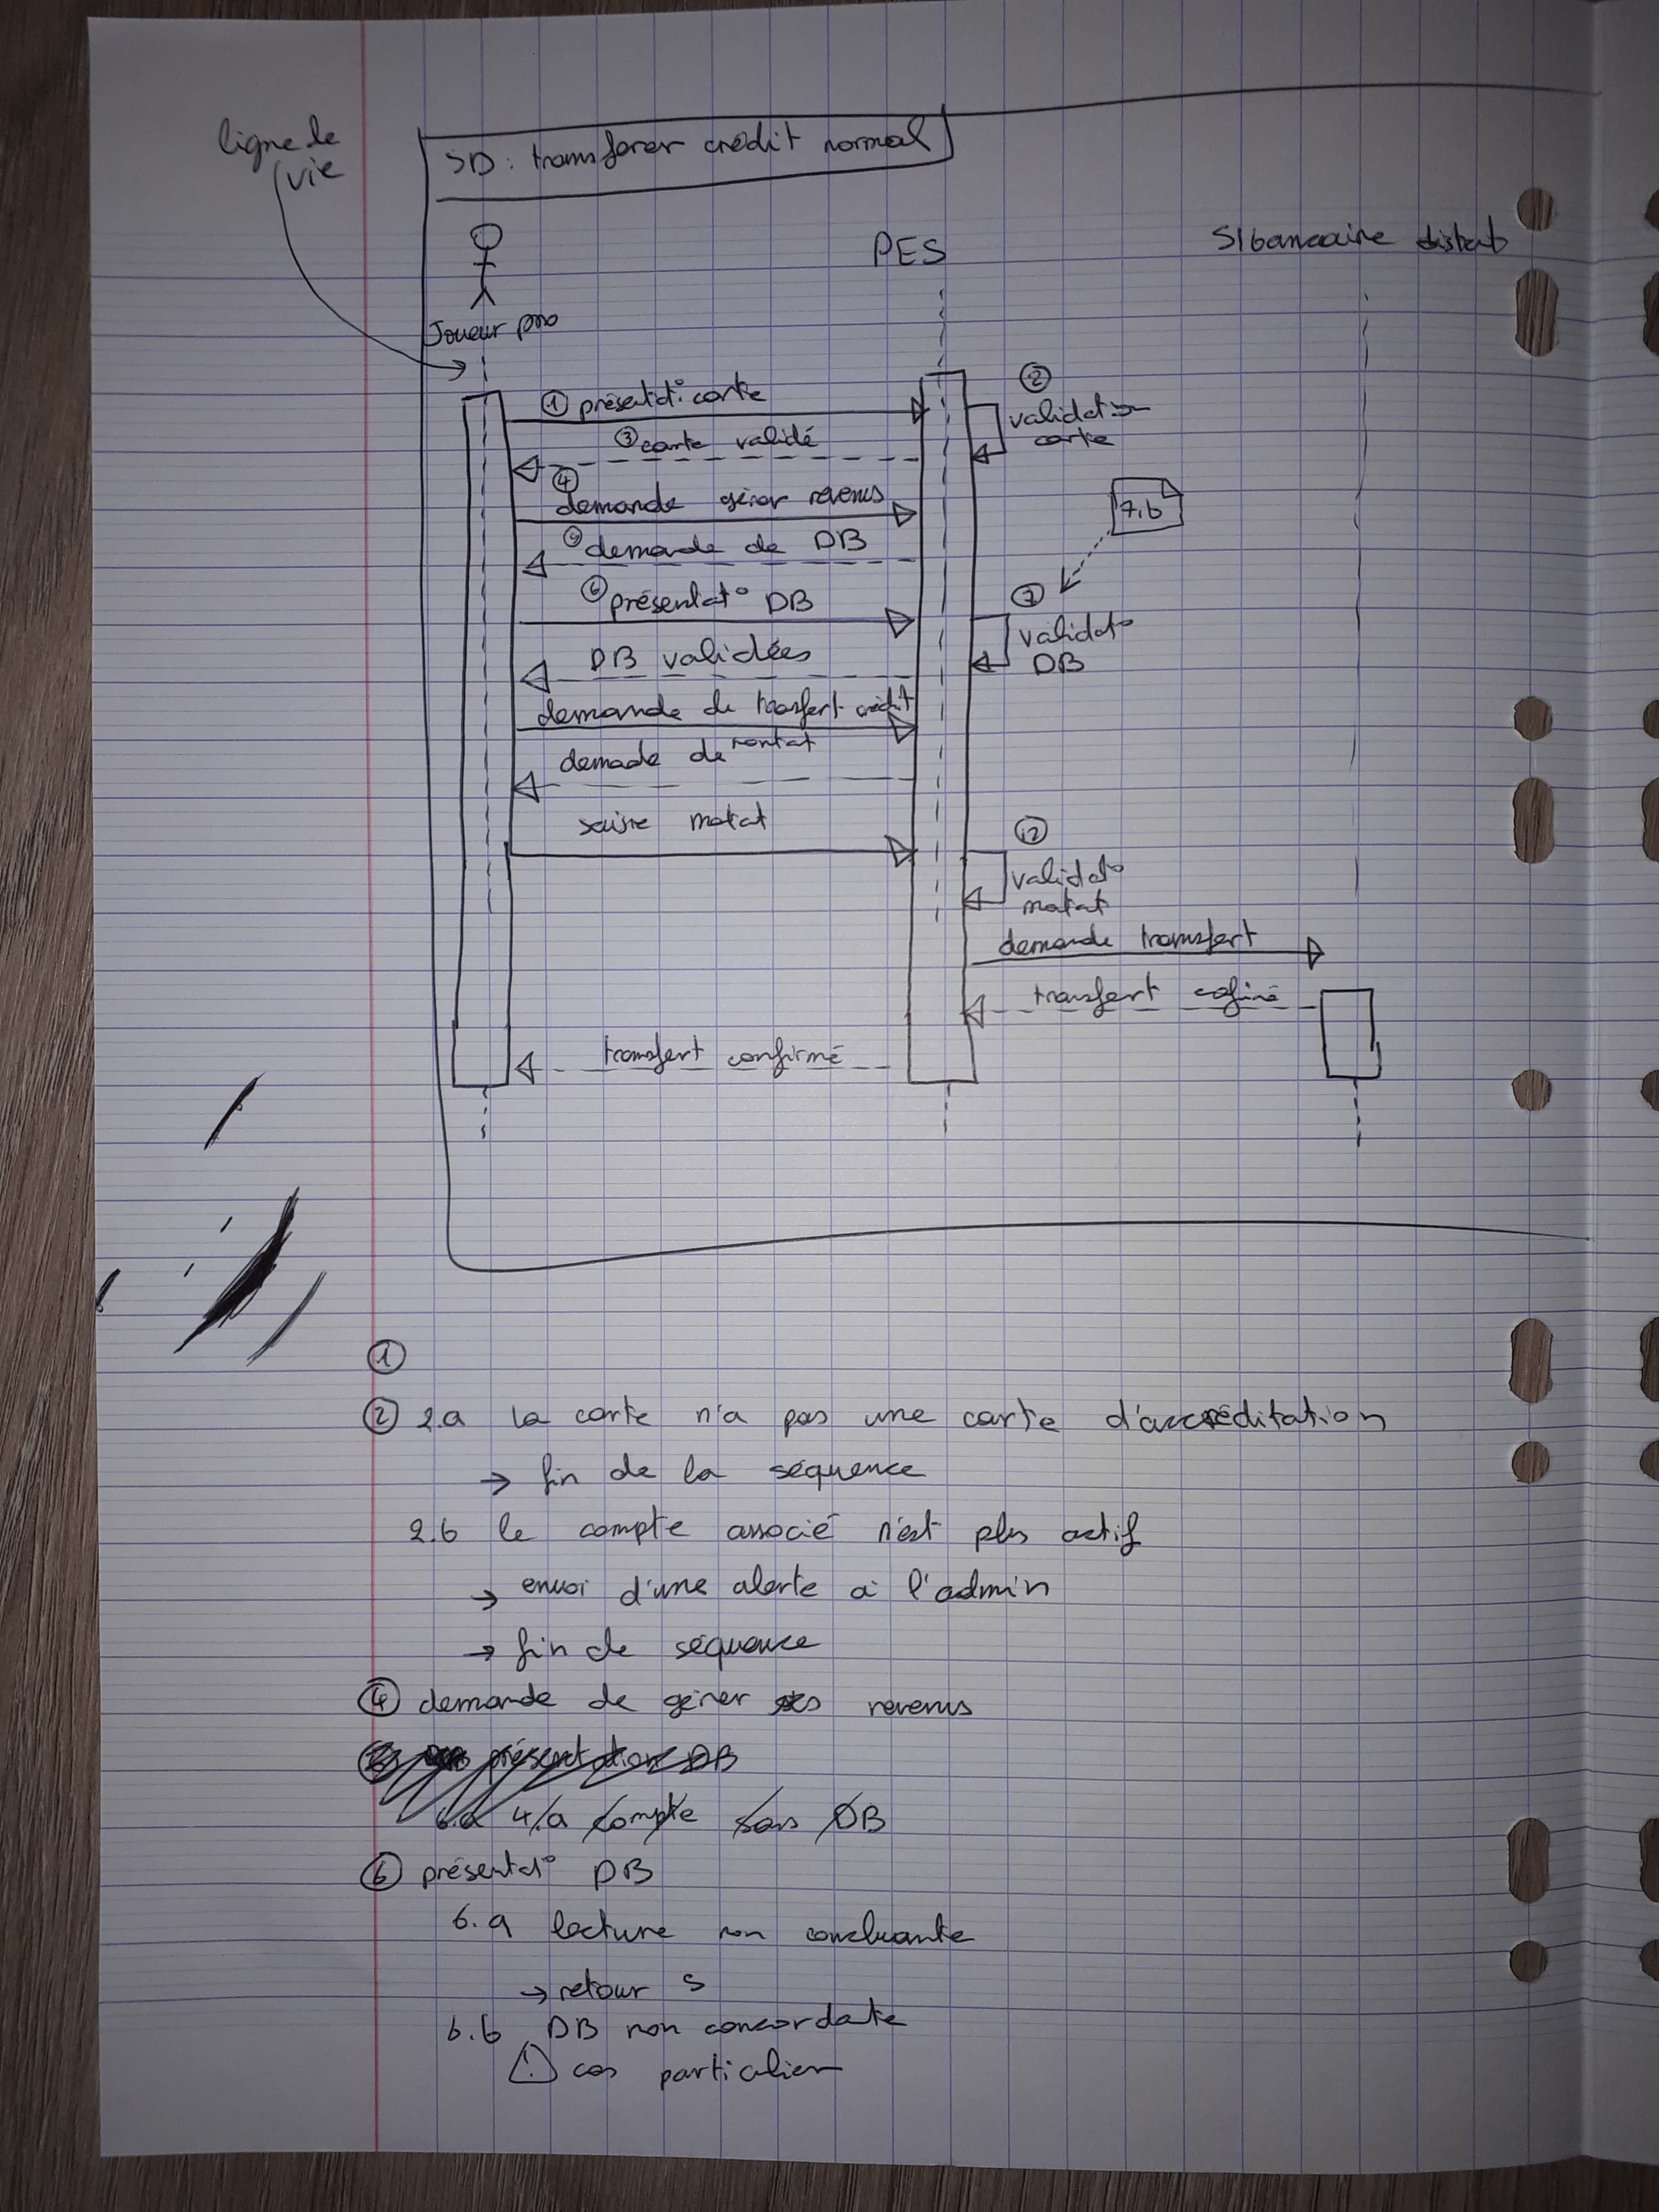 ligne de
vie
SD : transférer crédit normal
PES
SI bancaire distant
Joueur pro
① présentat° carte
②
validation
carte
③ carte validé
④
demande gérer revenus
7.b
⑤ demande de DB
⑥ présentat° DB
⑦
validat°
DB
DB validées
demande de transfert crédit
demade de montat
saisie motat
⑫
validat°
motat
demande transfert
transfert cofiré
transfert confirmé
①
② 2.a la carte n'a pas une carte d'accréditation
→ fin de la séquence
2.b le compte associé n'est plus actif
→ envoi d'une alerte à l'admin
→ fin de séquence
④ demande de gérer ses revenus
présentation DB
4.a compte sans DB
⑥ présentat° DB
6.a lecture non concluante
→ retour 5
6.b DB non concordate
⚠ cas particulier